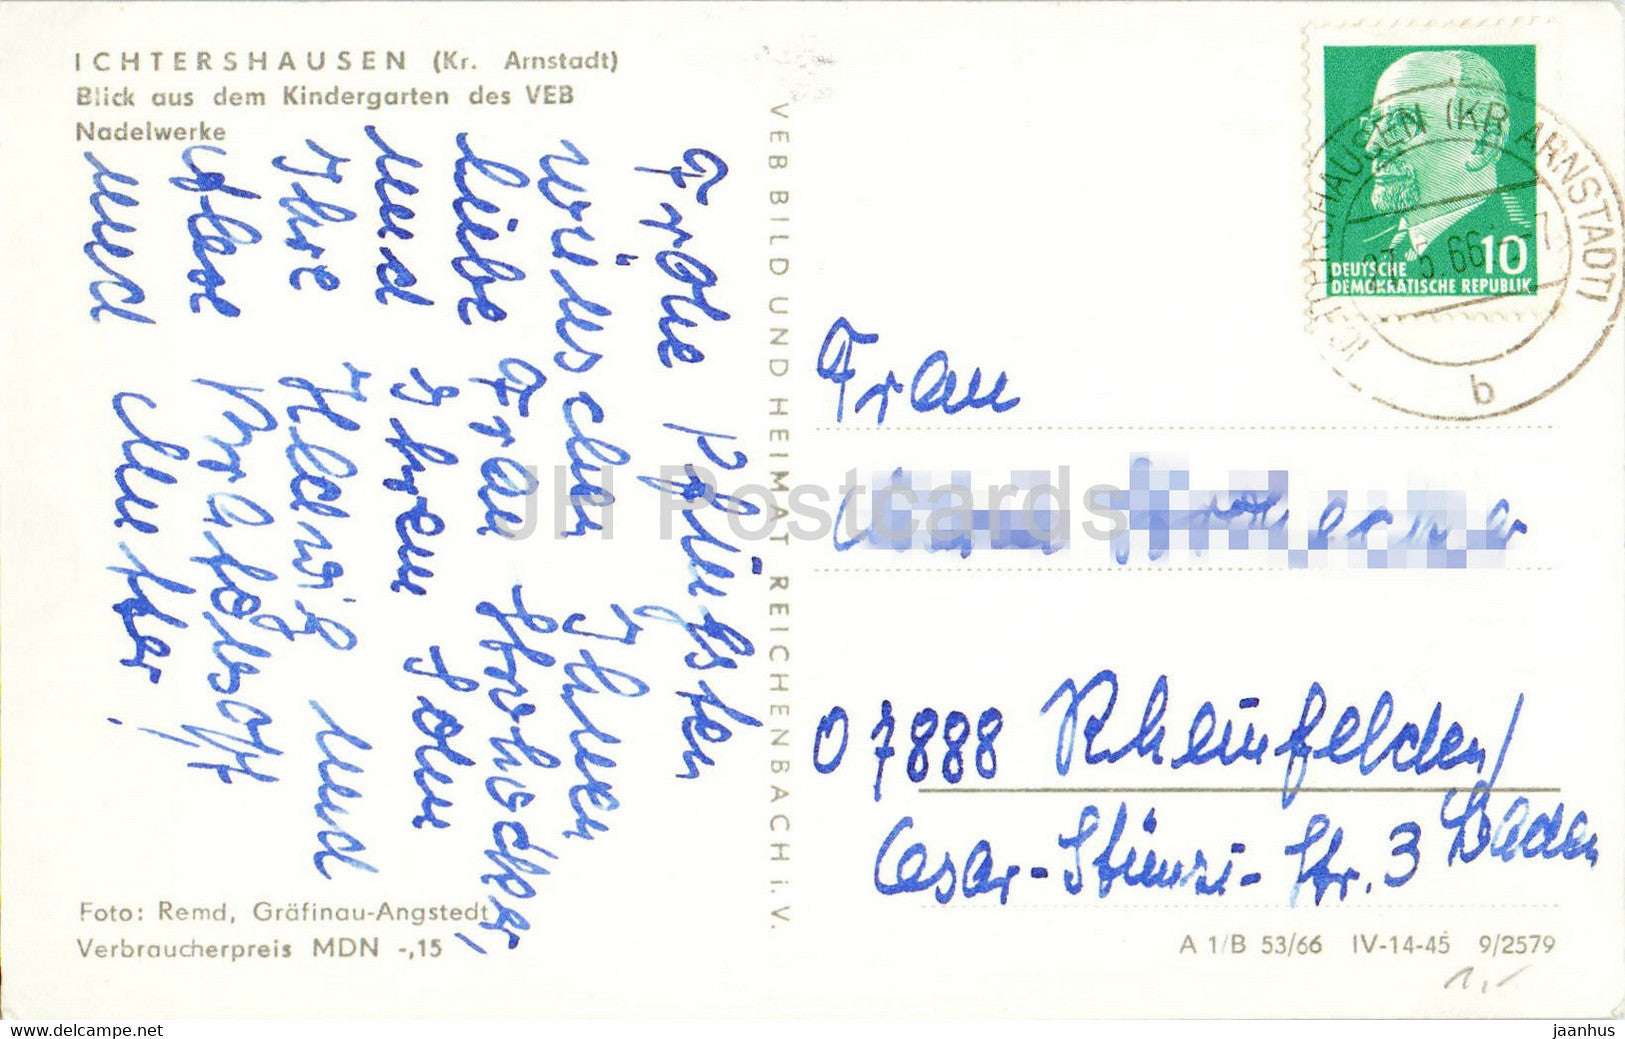 ICHTERSHAUSEN (Kr. Arnstadt)
Blick aus dem Kindergarten des VEB
Nadelwerke
Frohe Pfingsten
wünschen Ihnen
liebe Frau
und Ihrem Sohn
Ihre Hedwig und
und Mutter!
VEB BILD UND HEIMAT REICHENBACH i. V.
Foto: Remd, Gräfinau-Angstedt
Verbraucherpreis MDN -,15
10
DEUTSCHE
DEMOKRATISCHE REPUBLIK
ICHTERSHAUSEN (KR ARNSTADT)
5.66
b
Frau
07888 Rheinfelden/
Baden
Cesar-Stünzi-Str. 3
A 1/B 53/66 IV-14-45 9/2579
1,-
JH Postcards
www.delcampe.net
jaanhus